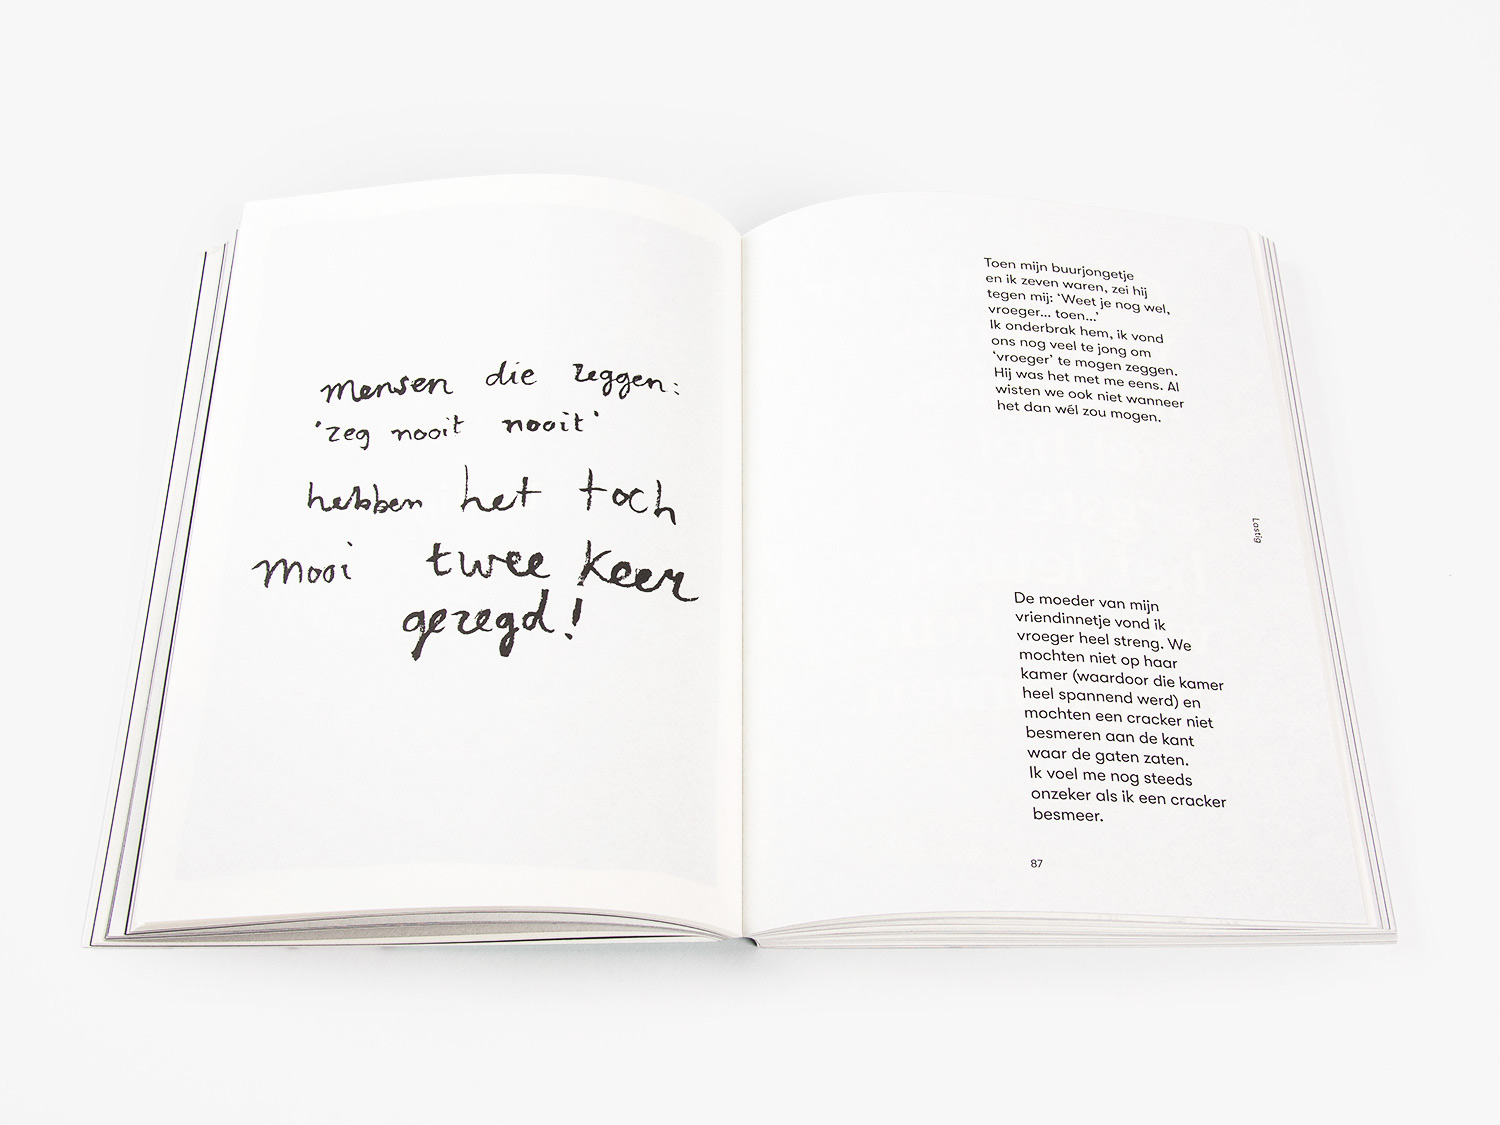 mensen die zeggen:
'zeg nooit nooit'
hebben het toch
mooi twee keer
gezegd!
Toen mijn buurjongetje
en ik zeven waren, zei hij
tegen mij: ‘Weet je nog wel,
vroeger... toen...’
Ik onderbrak hem, ik vond
ons nog veel te jong om
‘vroeger’ te mogen zeggen.
Hij was het met me eens. Al
wisten we ook niet wanneer
het dan wél zou mogen.
Lastig
De moeder van mijn
vriendinnetje vond ik
vroeger heel streng. We
mochten niet op haar
kamer (waardoor die kamer
heel spannend werd) en
mochten een cracker niet
besmeren aan de kant
waar de gaten zaten.
Ik voel me nog steeds
onzeker als ik een cracker
besmeer.
87